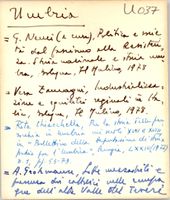 Umbria
U037
= G. Nenci (a cura), Politica e socie
tà dal fascismo alla Resisten
za. Storia nazionale e storia um
bra, Bologna, Il Mulino, 1978
= Vera Zamagni, Industrializza-
zione e squilibri regionali in Ita
lia, Bologna, Il Mulino, 1978
= Rita Chiacchella, Per la storia della par
rocchia in Umbria nei secoli XVII e XVIII
in "Bollettino della Deputazione di storia
patria per l'Umbria", Perugia, LXXIV (1977)
= A. Grohmann,
dell'alta Valle del Tevere